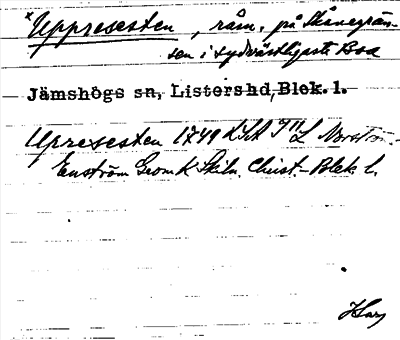 *Uppresesten, råm. på Skånegrän-
sen i sydvästligaste Boa
Jämshögs sn, Listers hd, Blek. l.
Upresesten 1749 KSA
Enström Geom K Skiln. Christ.-Blek. l.